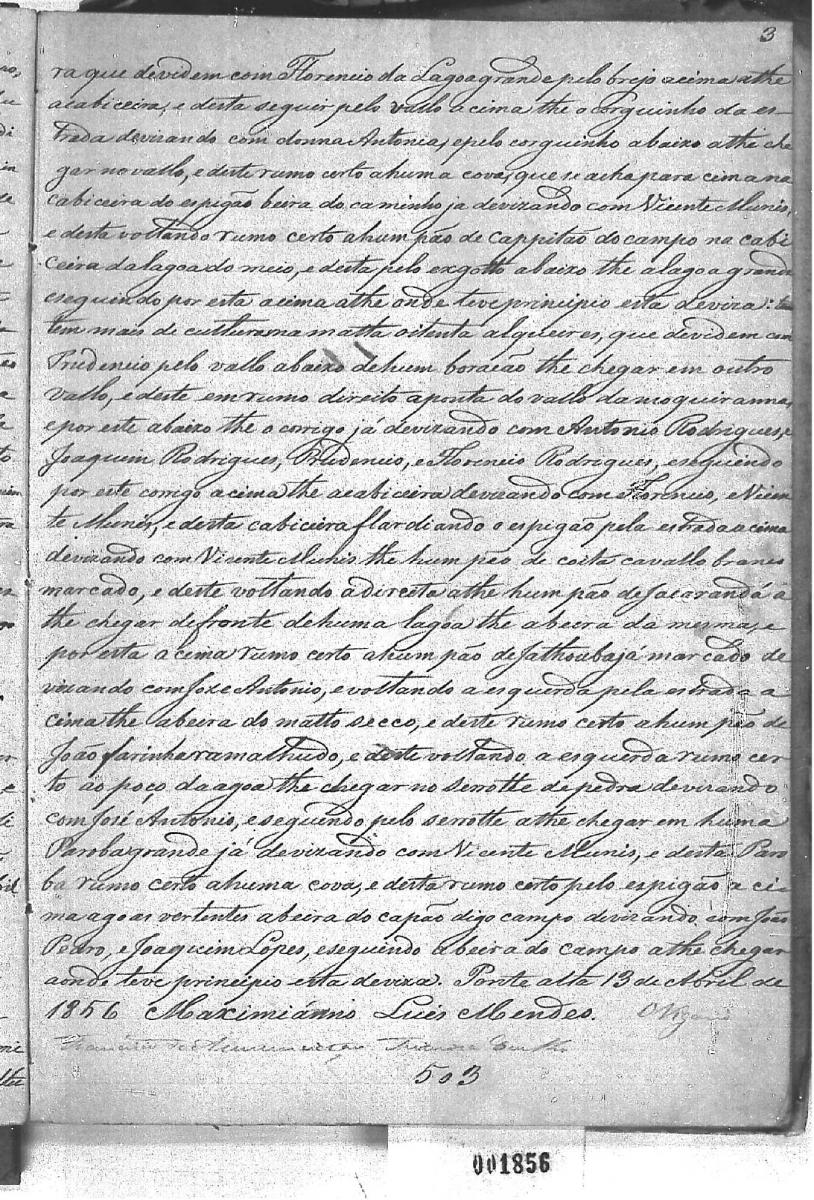 3
ra que devidem com Florencio da Lagoa grande pelo brejo acima athe
acabiceira, e desta seguir pelo vallo acima the o corguinho da es-
trada devizando com donna Antonia, e pelo corguinho abaixo athe che
gar no vallo, e deste rumo certo ahuma cova, que se acha para cima na
cabiceira do espigão beira do caminho ja devizando com Vicente Munis,
e desta voltando rumo certo ahum pão de Cappitão do campo na cabi
ceira da lagoa do meio, e desta pelo exgotto abaixo the alagoa grande
e seguindo por esta acima athe onde teve principio esta deviza:
tem mais de cultura na matta oitenta alqueires, que devidem com
Prudencio pelo vallo abaixo dehum boracão the chegar em outro
vallo, e deste em rumo direito aponta do vallo da moquiranna,
e por este abaixo the o corrigo já devizando com Antonio Rodrigues, e
Joaquim Rodrigues, Prudencio, e Florencio Rodrigues, e seguindo
por este corrigo acima the acabiceira devizando com Florencio, e Vicen
te Munis, e desta cabiceira flardiando o espigão pela estrada acima
devizando com Vicente Munis the hum pão de coita cavallo branco
marcado, e deste voltando a direita athe hum pão de Jacarandá a
the chegar defronte dehuma lagoa the abeira da mesma, e
por esta acima rumo certo ahum pão de Jathoabaja marcado de
vizando com Joze Antonio, e voltando a esquerda pela estrada a
cima the abeira do matto secco, e deste rumo certo ahum pão de
João farinha ramalhudo, e deste voltando a esquerda rumo cer
to ao poço da agoa the chegar no serrotte de pedra devizando
com José Antonio, e seguindo pelo serrotte athe chegar em huma
Paroba grande já devizando com Vicente Munis, e desta Paro
ba rumo certo ahuma cova, e desta rumo certo pelo espigão a ci
ma agoas vertentes abeira do capão digo campo devizando com João
Pedro, e Joaquim Lopes, e seguindo abeira do campo athe chegar
aonde teve principio esta deviza. Ponte alta 13 de Abril de
1856 Maximiánno Luis Mendes.
503
001856